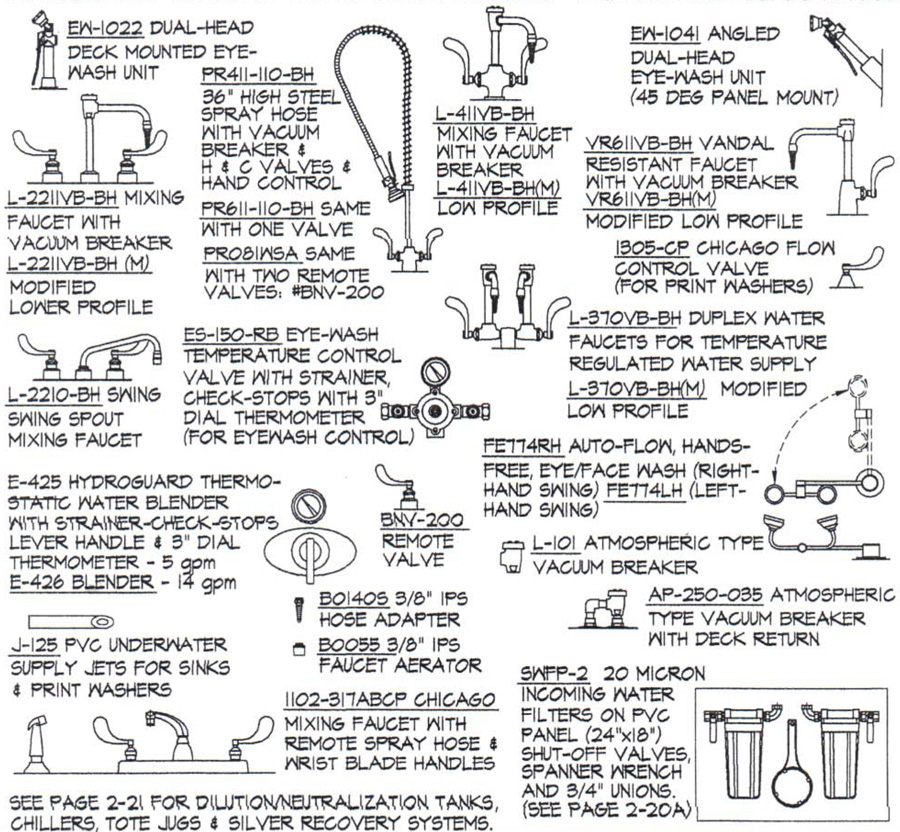 EW-1022 DUAL-HEAD
DECK MOUNTED EYE-
WASH UNIT
PR411-110-BH
36" HIGH STEEL
SPRAY HOSE
WITH VACUUM
BREAKER &
H & C VALVES &
HAND CONTROL
PR611-110-BH SAME
WITH ONE VALVE
PRO81WSA SAME
WITH TWO REMOTE
VALVES: #BNV-200
L-411VB-BH
MIXING FAUCET
WITH VACUUM
BREAKER
L-411VB-BH(M)
LOW PROFILE
EW-1041 ANGLED
DUAL-HEAD
EYE-WASH UNIT
(45 DEG PANEL MOUNT)
VR611VB-BH VANDAL
RESISTANT FAUCET
WITH VACUUM BREAKER
VR611VB-BH(M)
MODIFIED LOW PROFILE
1305-CP CHICAGO FLOW
CONTROL VALVE
(FOR PRINT WASHERS)
L-2211VB-BH MIXING
FAUCET WITH
VACUUM BREAKER
L-2211VB-BH (M)
MODIFIED
LOWER PROFILE
L-370VB-BH DUPLEX WATER
FAUCETS FOR TEMPERATURE
REGULATED WATER SUPPLY
L-370VB-BH(M) MODIFIED
LOW PROFILE
ES-150-RB EYE-WASH
TEMPERATURE CONTROL
VALVE WITH STRAINER,
CHECK-STOPS WITH 3"
DIAL THERMOMETER
(FOR EYEWASH CONTROL)
L-2210-BH SWING
SWING SPOUT
MIXING FAUCET
FE774RH AUTO-FLOW, HANDS-
FREE, EYE/FACE WASH (RIGHT-
HAND SWING) FE774LH (LEFT-
HAND SWING)
E-425 HYDROGUARD THERMO-
STATIC WATER BLENDER
WITH STRAINER-CHECK-STOPS
LEVER HANDLE & 3" DIAL
THERMOMETER - 5 gpm
E-426 BLENDER - 14 gpm
BNV-200
REMOTE
VALVE
L-101 ATMOSPHERIC TYPE
VACUUM BREAKER
BO140S 3/8" IPS
HOSE ADAPTER
BO0055 3/8" IPS
FAUCET AERATOR
AP-250-035 ATMOSPHERIC
TYPE VACUUM BREAKER
WITH DECK RETURN
J-125 PVC UNDERWATER
SUPPLY JETS FOR SINKS
& PRINT WASHERS
1102-317ABCP CHICAGO
MIXING FAUCET WITH
REMOTE SPRAY HOSE &
WRIST BLADE HANDLES
SWFP-2 20 MICRON
INCOMING WATER
FILTERS ON PVC
PANEL (24"x18")
SHUT-OFF VALVES,
SPANNER WRENCH
AND 3/4" UNIONS.
(SEE PAGE 2-20A)
SEE PAGE 2-21 FOR DILUTION/NEUTRALIZATION TANKS,
CHILLERS, TOTE JUGS & SILVER RECOVERY SYSTEMS.